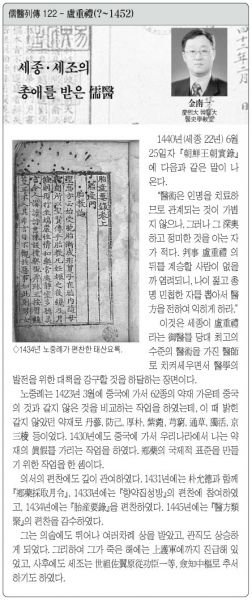 儒醫列傳 122 - 盧重禮(?~1452)
세종·세조의
총애를 받은 儒醫
金南一
慶熙大 韓醫大
醫史學敎室
1440년(세종 22년) 6월
25일자 『朝鮮王朝實錄』
에 다음과 같은 말이 나
온다.
“醫術은 인명을 치료하
므로 관계되는 것이 가볍
지 않으나, 그러나 그 深奧
하고 정미한 것을 아는 자
가 적다. 判事 盧重禮의
뒤를 계승할 사람이 없을
까 염려되니, 나이 젊고 총
명 민첩한 자를 뽑아서 醫
方을 전하여 익히게 하라.”
이것은 세종이 盧重禮
라는 御醫를 당대 최고의
수준의 醫術을 가진 醫師
로 치켜세우면서 醫學의
◇1434년 노중례가 편찬한 태산요록.
발전을 위한 대책을 강구할 것을 하달하는 장면이다.
노중례는 1423년 3월에 중국에 가서 62종의 약재 가운데 중국
의 것과 같지 않은 것을 비교하는 작업을 하였는데, 이 때 밝힌
같지 않았던 약재로 丹蔘, 防己, 厚朴, 紫菀, 芎窮, 通草, 獨活, 京
三稜 등이었다. 1430년에도 중국에 가서 우리나라에서 나는 약
재의 眞假를 가리는 작업을 하였다. 鄕藥의 국제적 표준을 만들
기 위한 작업을 한 셈이다.
의서의 편찬에도 깊이 관여하였다. 1431년에는 朴允德과 함께
『鄕藥採取月令』, 1433년에는 『향약집성방』의 편찬에 참여하였
고, 1434년에는 『胎産要錄』을 편찬하였다. 1445년에는 『醫方類
聚』의 편찬을 감수하였다.
그는 의술에도 뛰어나 여러차례 상을 받았고, 관직도 상승하
게 되었다. 그리하여 그가 죽은 해에는 上護軍에까지 진급해 있
었고, 사후에도 세조는 世祖佐翼原從功臣一等, 僉知中樞로 추서
하기도 하였다.